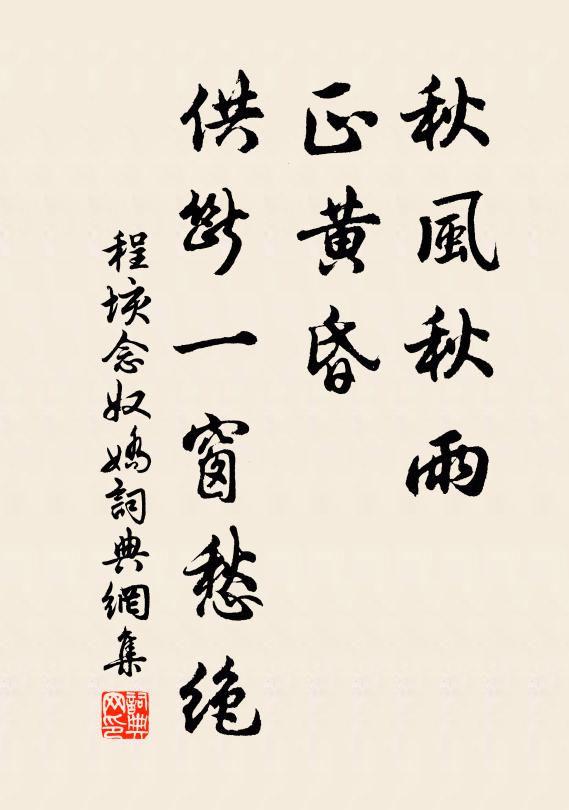 秋風秋雨
正黃昏
供斷一窗愁絕
程垓念奴嬌詞典網集
詞典网印